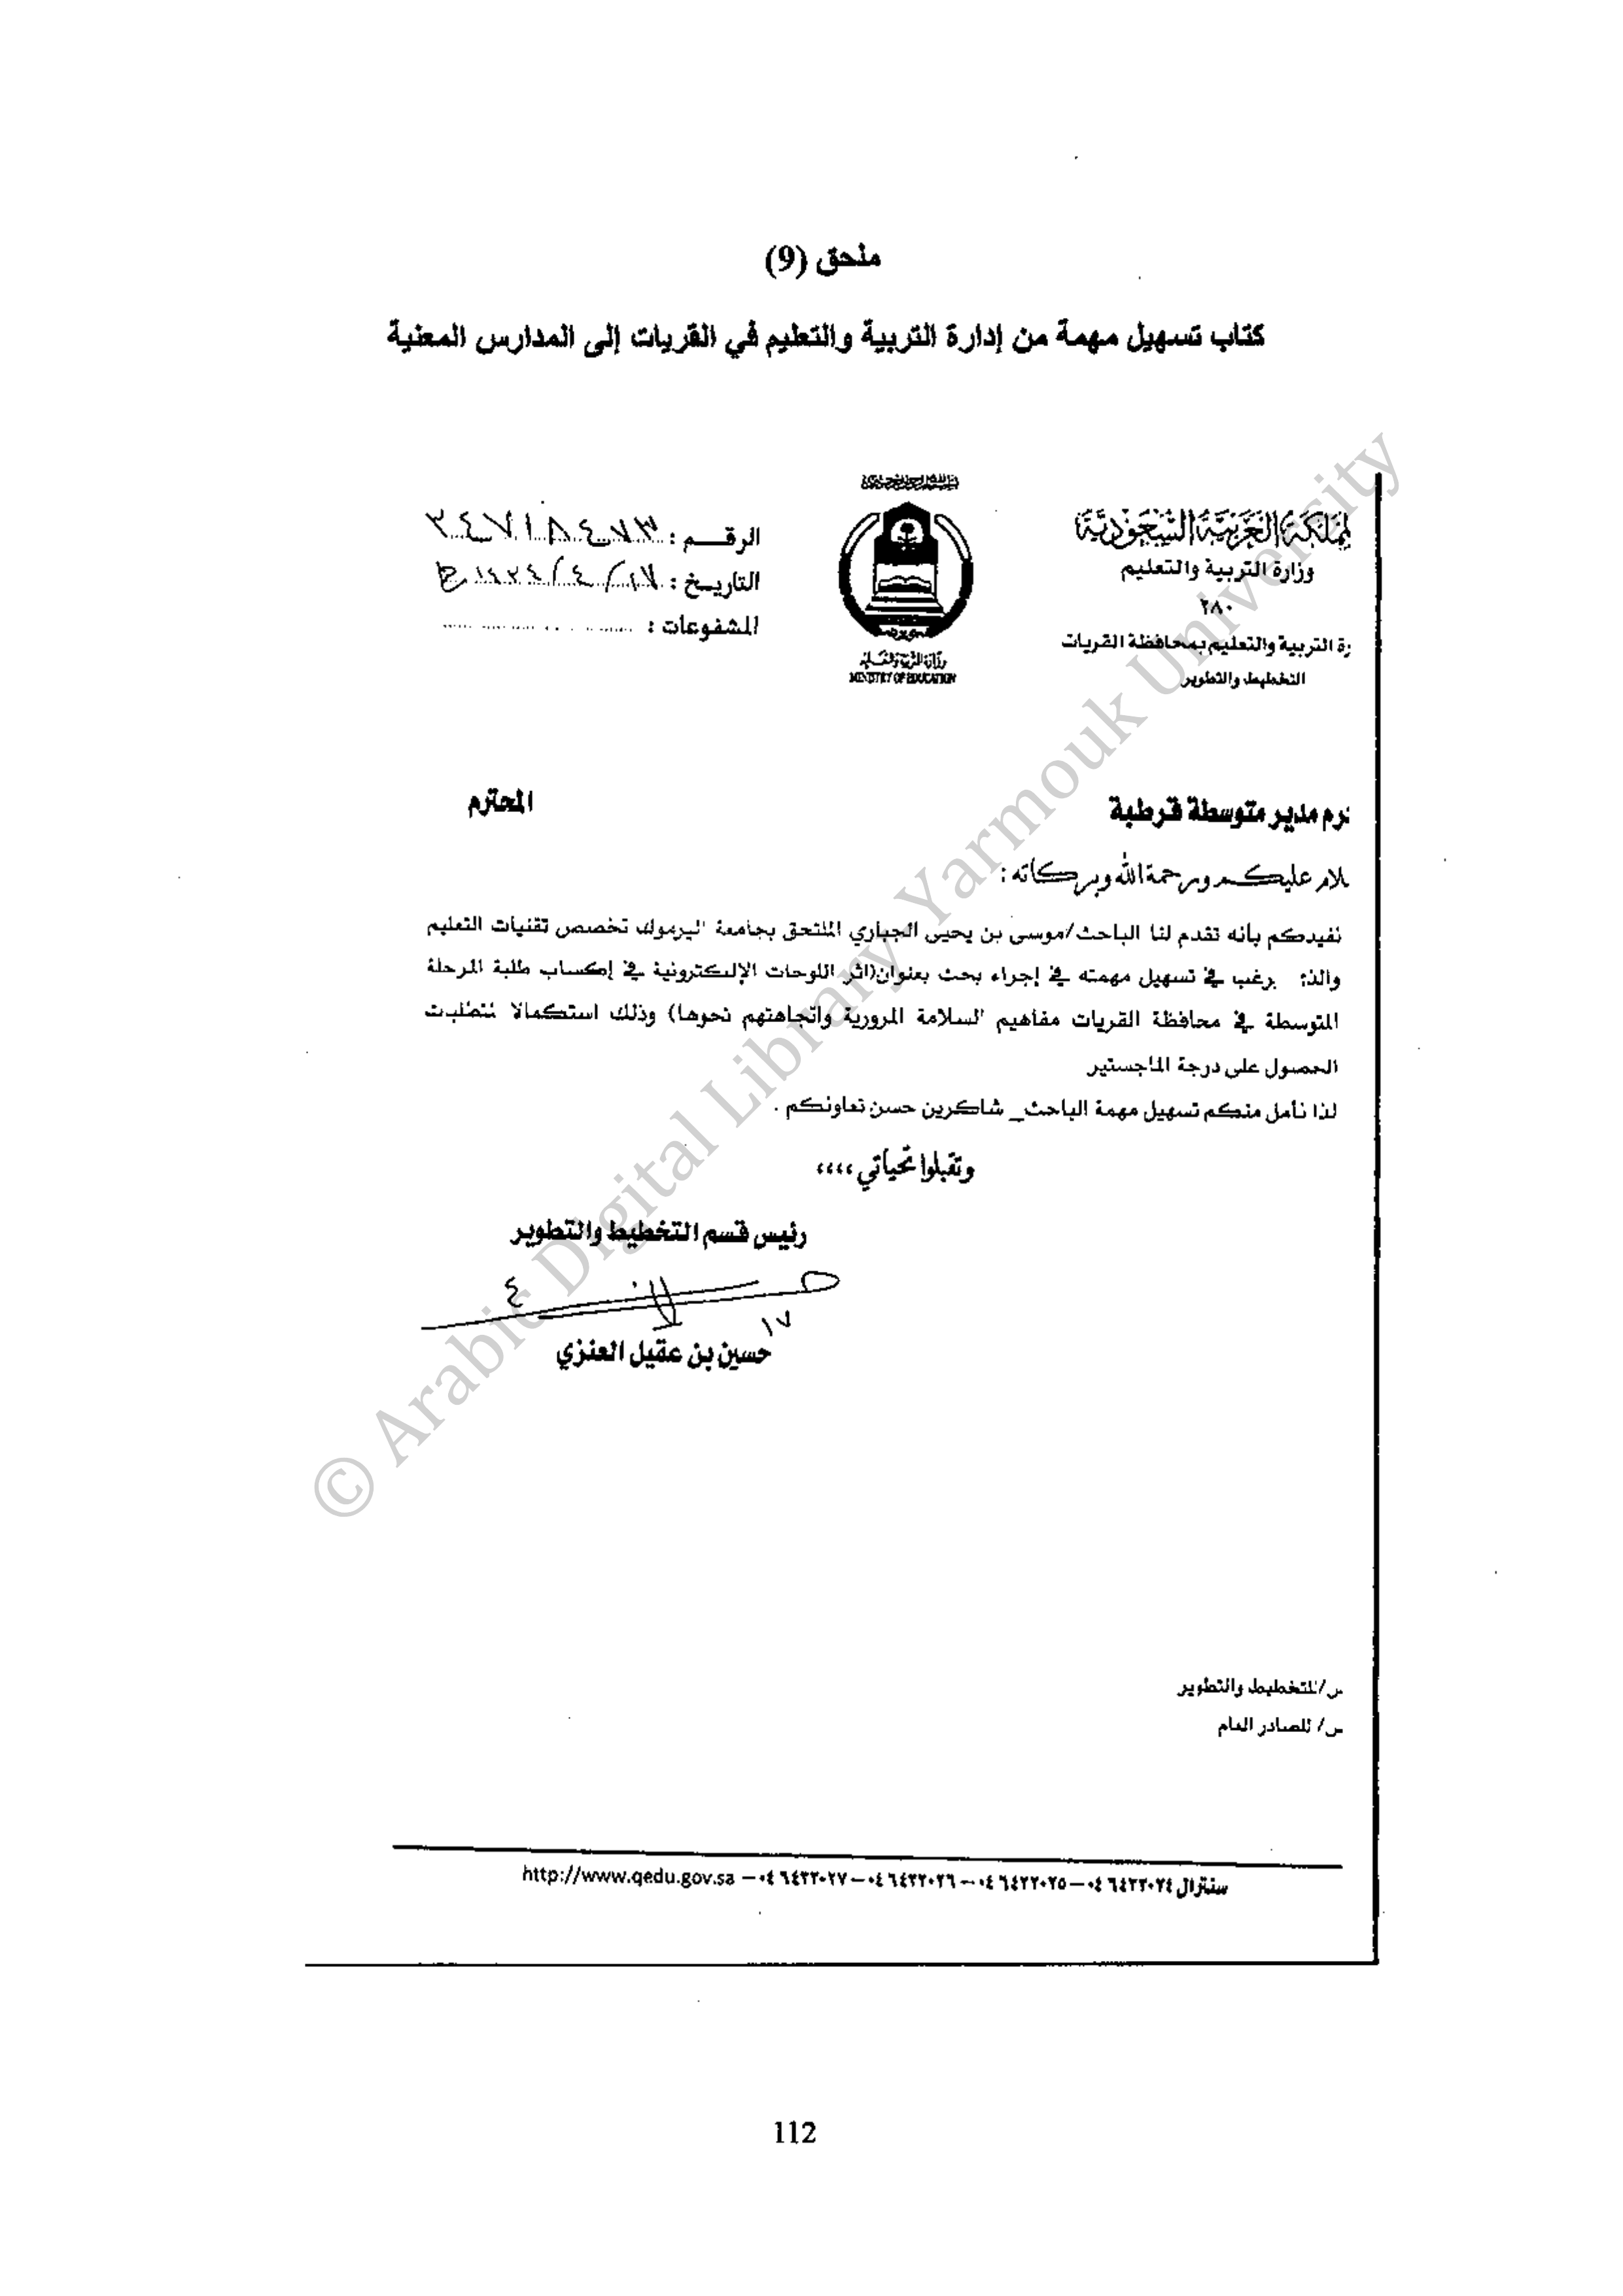 ملحق (9)
كتاب تسهيل مهمة من إدارة التربية والتعليم في القريات إلى المدارس المعنية
لمملكة العربية السعودية
وزارة التربية والتعليم
٢٨٠
رة التربية والتعليم بمحافظة القريات
التخطيط والتطوير
وزارة التربية والتعليم
MINISTRY OF EDUCATION
الرقم : ٣٤٧١٨٤٧٣
التاريخ : ١٧/٤/١٤٣٤هـ
المشفوعات :
رم مدير متوسطة قرطبة المحترم
لام عليكم ورحمة الله وبركاته :
نفيدكم بأنه تقدم لنا الباحث/موسى بن يحيى الجباري الملتحق بجامعة اليرموك تخصص تقنيات التعليم
والذ؛ يرغب في تسهيل مهمته في إجراء بحث بعنوان(اثر اللوحات الإليكترونية في إكساب طلبة المرحلة
المتوسطة في محافظة القريات مفاهيم السلامة المرورية واتجاهتهم نحوها) وذلك استكمالا لمتطلبت
الحصول على درجة الماجستير
لذا نأمل منكم تسهيل مهمة الباحث_ شاكرين حسن تعاونكم .
وتقبلوا تحياتي ،،،،
رئيس قسم التخطيط والتطوير
٤
١٧
حسين بن عقيل العنزي
س/للتخطيط والتطوير
س/ للصادر العام
سنترال ٠٤٦٤٢٢٠٢٤ – ٠٤٦٤٢٢٠٢٥ – ٠٤٦٤٢٢٠٢٦ – ٠٤٦٤٢٢٠٢٧ – http://www.qedu.gov.sa
112
© Arabic Digital Library-Yarmouk University